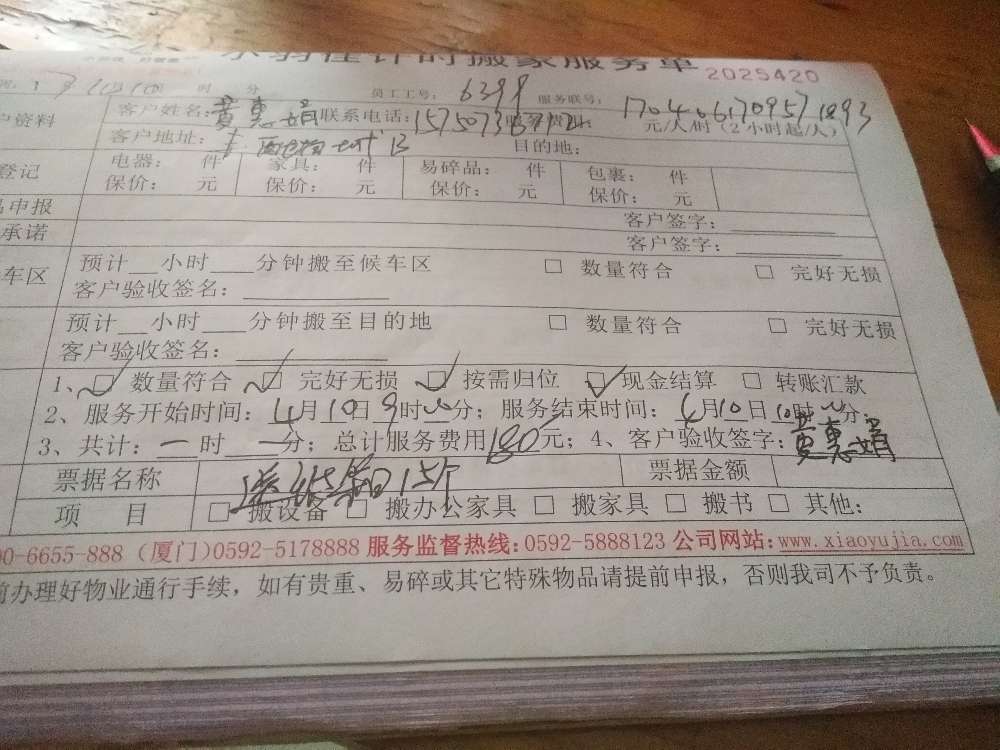 性计时搬家服务单 2025420
时 分 员工工号: 6399 服务联号: 1704061709571893
户资料 客户姓名: 黄惠娟 联系电话: 元/人/时 (2小时起/人)
客户地址: 目的地:
登记 电器: 件 家具: 件 易碎品: 件 包裹: 件
保价: 元 保价: 元 保价: 元 保价: 元
品申报 客户签字:
承诺 客户签字:
车区 预计__小时___分钟搬至候车区 □ 数量符合 □ 完好无损
客户验收签名:
预计__小时___分钟搬至目的地 □ 数量符合 □ 完好无损
客户验收签名:
1、☑ 数量符合 ☑ 完好无损 ☑ 按需归位 ☑ 现金结算 □ 转账汇款
2、服务开始时间: 4月10日9时分; 服务结束时间: 4月10日10时分;
3、共计: 一时一分; 总计服务费用180元; 4、客户验收签字: 黄惠娟
票据名称 送纸箱15个 票据金额
项 目 □ 搬设备 □ 搬办公家具 □ 搬家具 □ 搬书 □ 其他:
00-6655-888 (厦门)0592-5178888 服务监督热线: 0592-5888123 公司网站: www.xiaoyujia.com
前办理好物业通行手续, 如有贵重、易碎或其它特殊物品请提前申报, 否则我司不予负责。